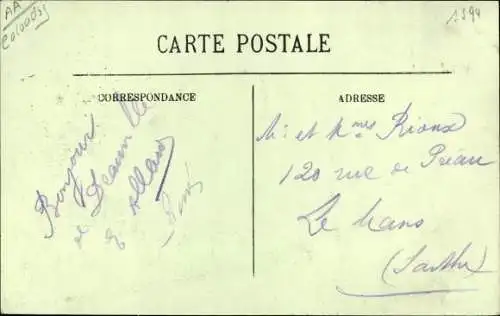 AA
Calvados
1594
CARTE POSTALE
CORRESPONDANCE
Bonjour
de Deauville
E Allard
ADRESSE
Mr et Mmes Rioux
120 rue de Préau
Le Mans
(Sarthe)